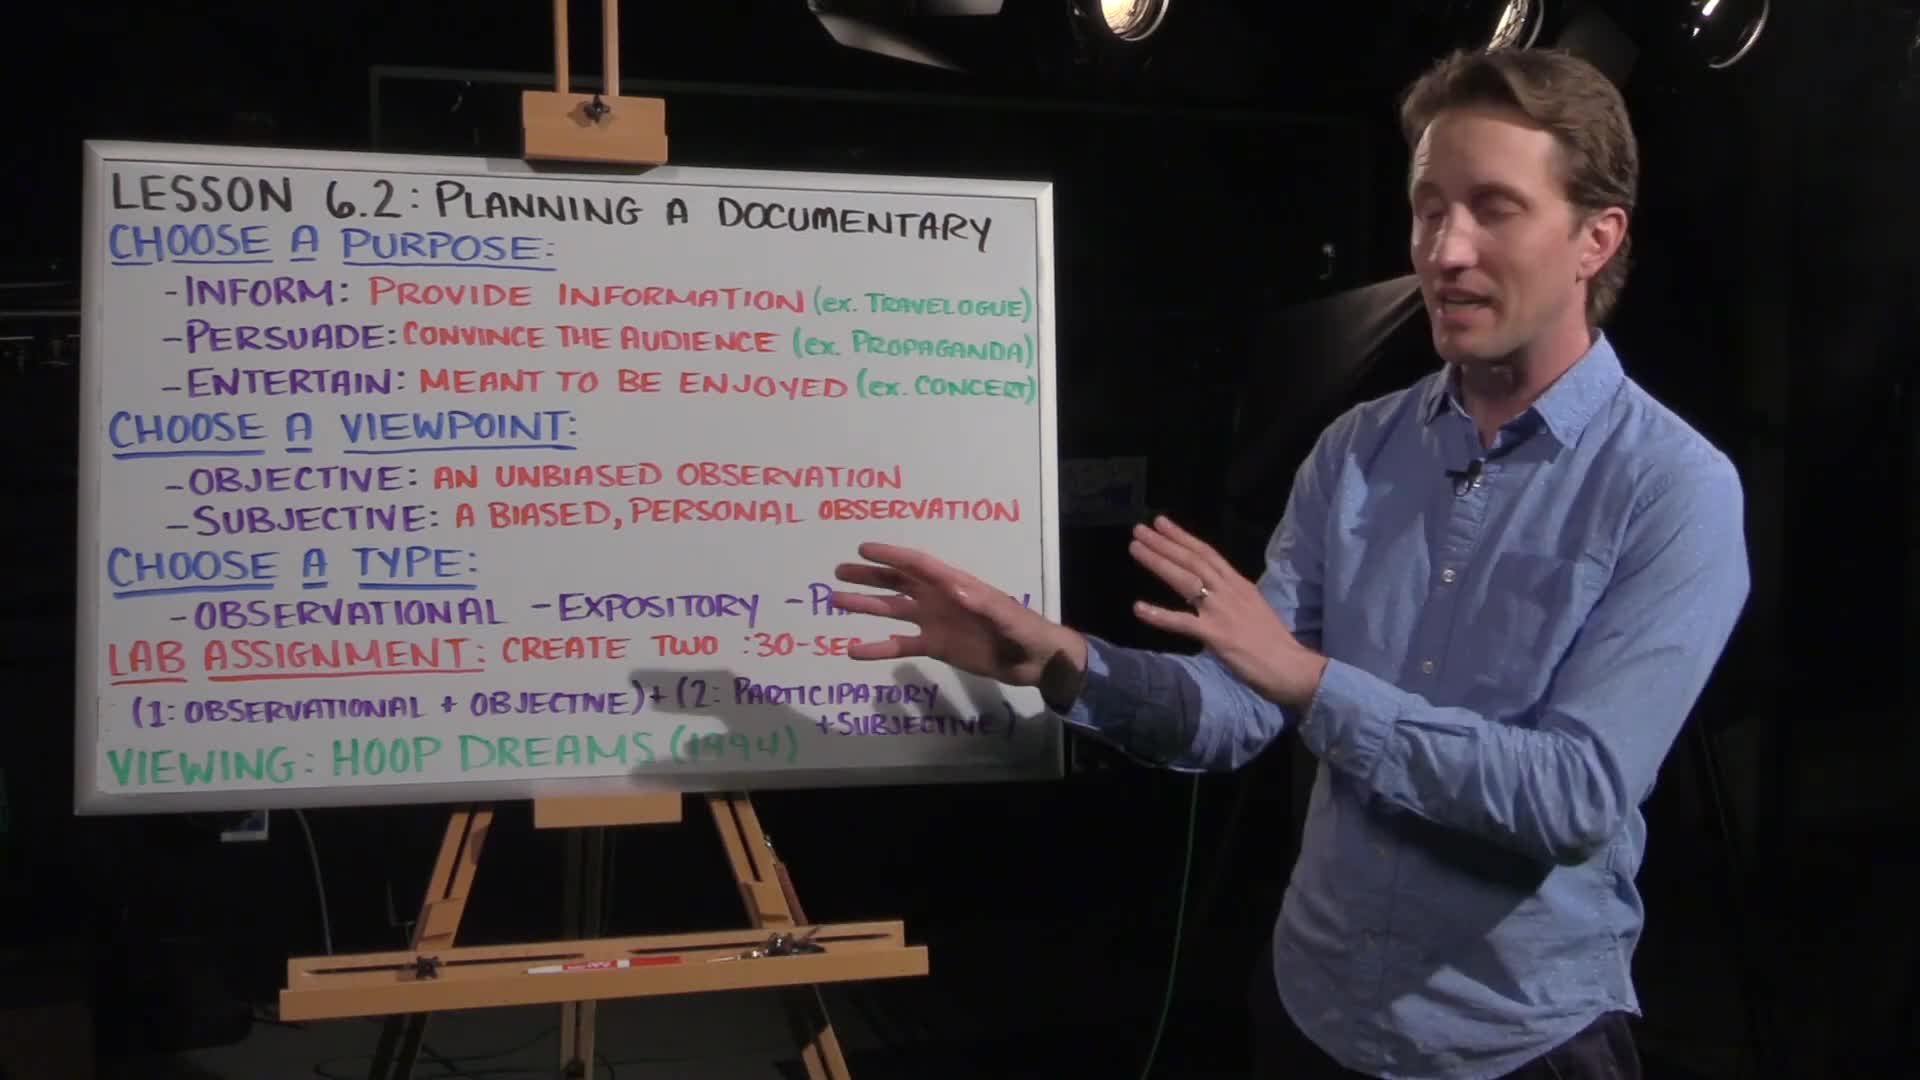 LESSON 6.2: PLANNING A DOCUMENTARY
CHOOSE A PURPOSE:
-INFORM: PROVIDE INFORMATION (ex. TRAVELOGUE)
-PERSUADE: CONVINCE THE AUDIENCE (ex. PROPAGANDA)
-ENTERTAIN: MEANT TO BE ENJOYED (ex. CONCERT)
CHOOSE A VIEWPOINT:
-OBJECTIVE: AN UNBIASED OBSERVATION
-SUBJECTIVE: A BIASED, PERSONAL OBSERVATION
CHOOSE A TYPE:
-OBSERVATIONAL -EXPOSITORY
LAB ASSIGNMENT: CREATE TWO :30-SE
(1: OBSERVATIONAL + OBJECTIVE) + (2: PARTICIPATORY
+ SUBJECTIVE)
VIEWING: HOOP DREAMS (1994)